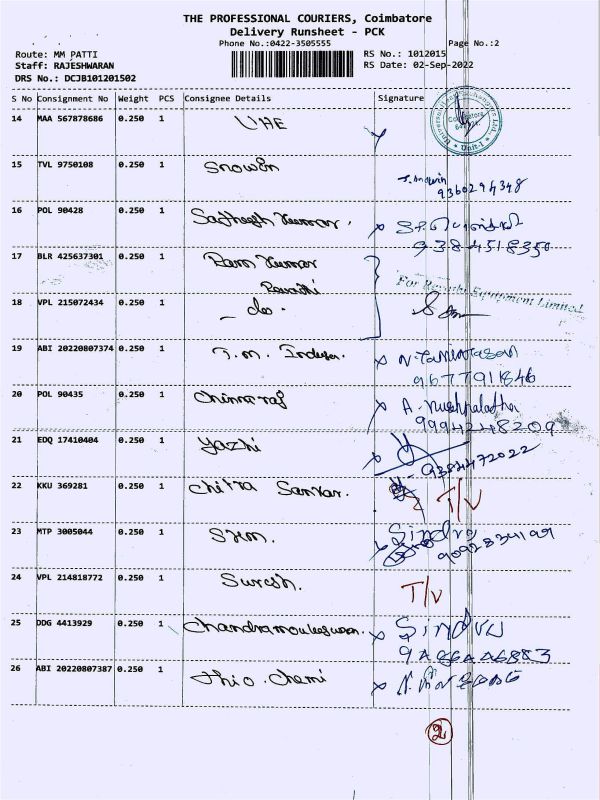 THE PROFESSIONAL COURIERS, Coimbatore
Delivery Runsheet - PCK
Phone No.:0422-3505555
Page No.:2
Route: MM PATTI
RS No.: 1012015
Staff: RAJESHWARAN
RS Date: 02-Sep-2022
DRS No.: DCJB101201502
S No Consignment No Weight PCS Consignee Details Signature
14 MAA 567878686 0.250 1 UAE
Unit-I
15 TVL 9750108 0.250 1 Snowin
9360294348
16 POL 90428 0.250 1 Sathesh Kumar.
9384518350
17 BLR 425637301 0.250 1 Ram Kumar
Revathi
For Revathi Equipment Limited
18 VPL 215072434 0.250 1 - do -
19 ABI 20220807374 0.250 1 T.M.
9677911846
20 POL 90435 0.250 1 Chinnaraj
A. Mushpalatha
9994248209
21 EDQ 17410404 0.250 1 Yazhi
9384472022
22 KKU 369281 0.250 1 Chitra Sankar.
T/V
23 MTP 3005044 0.250 1
Sindru
24 VPL 214818772 0.250 1 Suresh.
T/V
25 DDG 4413929 0.250 1 Chandramouleeswaran
Sindru
26 ABI 20220807387 0.250 1 Thio. Chemi
2